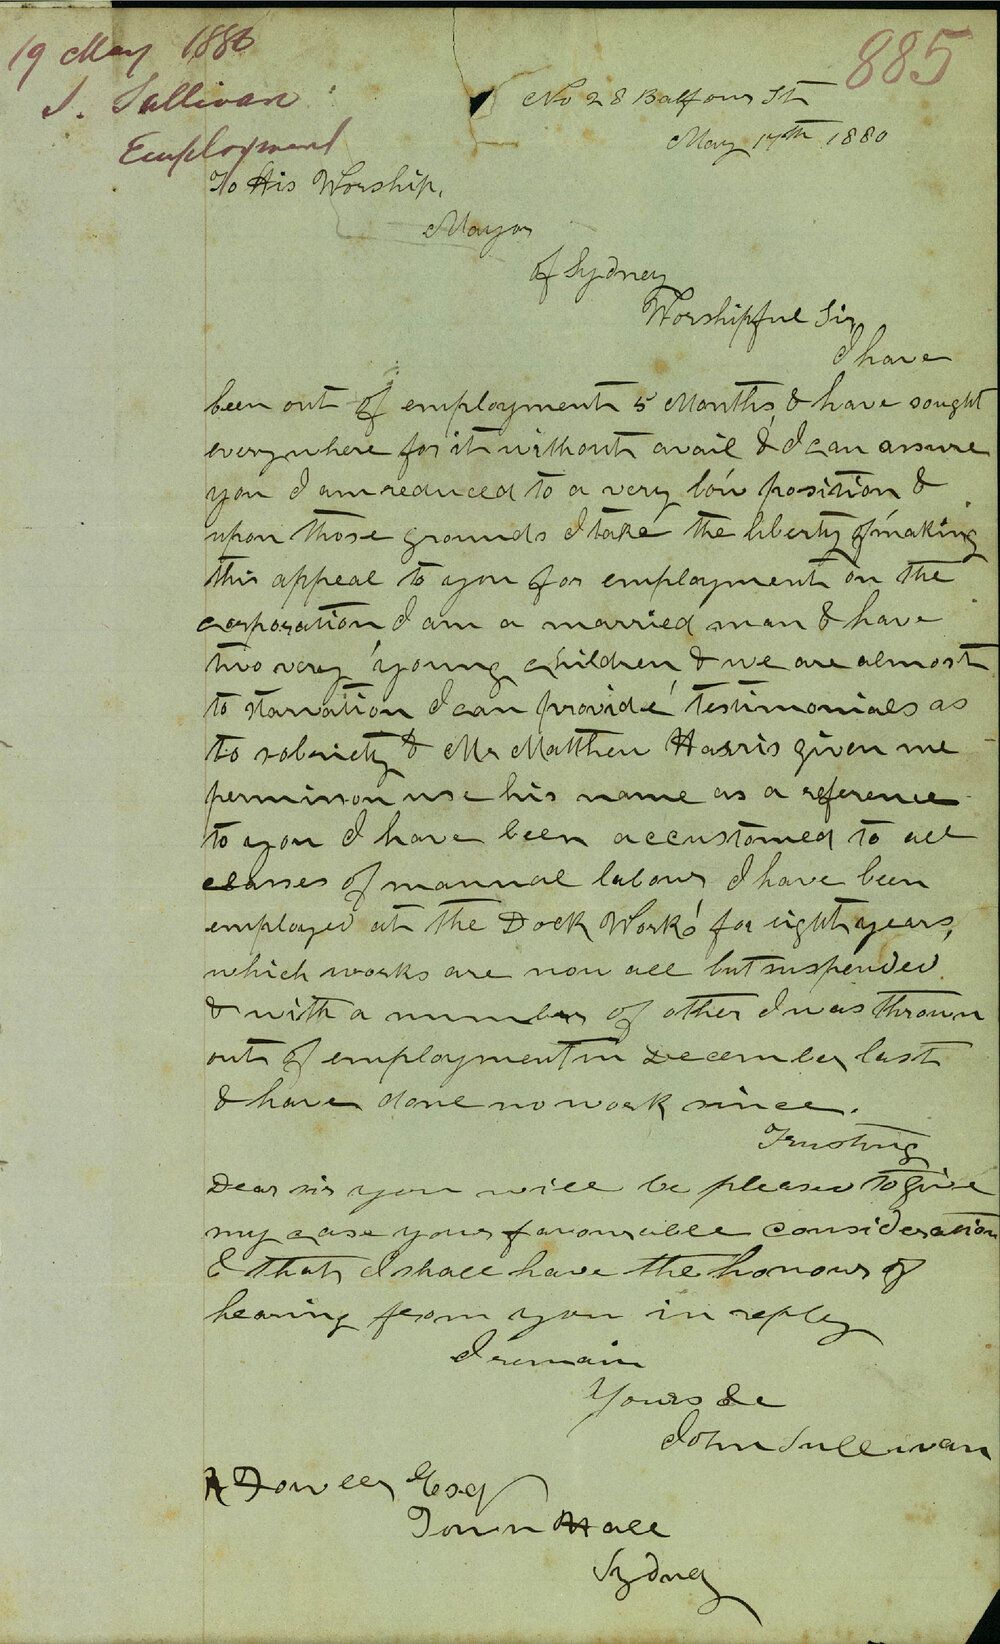 19 May 1880
J. Sullivan
Employment
885
No 28 Balfour St
May 17th 1880
To His Worship,
Mayor
of Sydney
Worshipful Sir
I have
been out of employment 5 Months & have sought
everywhere for it without avail & I can assure
you I am reduced to a very low position &
upon those grounds I take the liberty of making
this appeal to you for employment on the
corporation I am a married man & have
two very young children & we are almost
to starvation I can provide testimonials as
to sobriety & Mr Matthew Harris given me
permission use his name as a reference
to you I have been accustomed to all
classes of manual labour I have been
employed at the Dock Works for eight years,
which works are now all but suspended
& with a number of other I was thrown
out of employment in December last
& have done no work since.
Trusting
Dear sir you will be pleased to give
my case your favourable consideration
& that I shall have the honour of
hearing from you in reply
I remain
Yours &c
John Sullivan
A Fowler Esq
Town Hall
Sydney